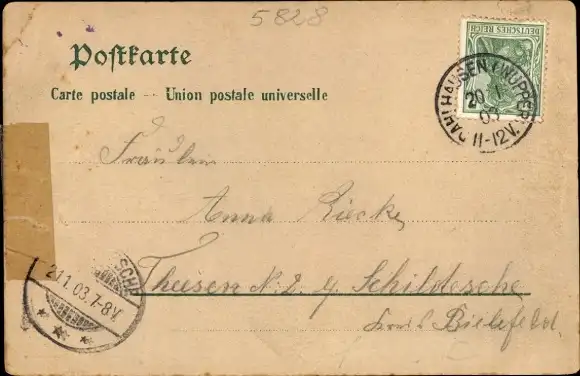 5828
Postkarte
Carte postale -- Union postale universelle
DEUTSCHES REICH
DAHLHAUSEN (WUPPER)
20 1
03
11-12V.
Fräulein
Anna Riecke,
Theesen N. 2. b/ Schildesche
Kreis Bielefeld.
21.1.03.7-8V.